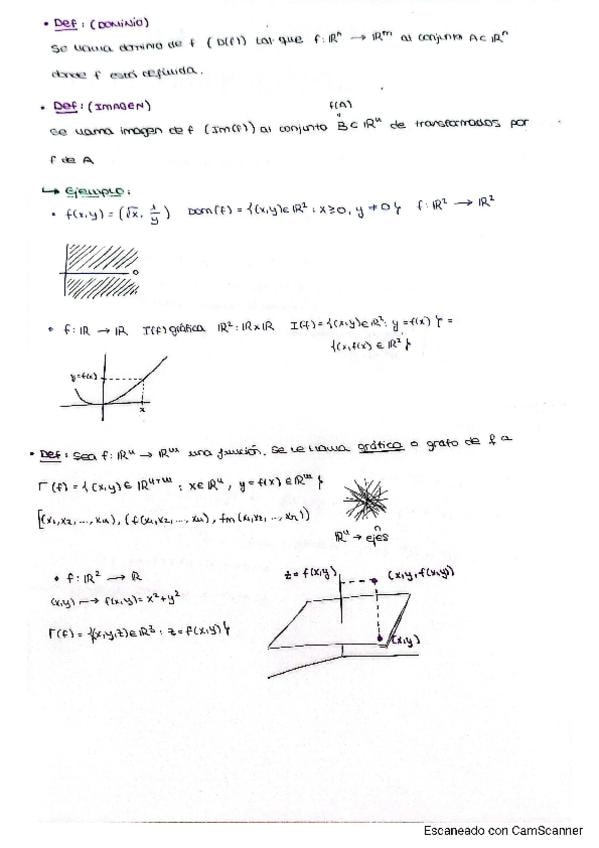 • Def: (DOMINIO)
Se llama dominio de f (D(f)) tal que f: ℝⁿ → ℝᵐ al conjunto A⊂ℝⁿ
donde f está definida.
• Def: (IMAGEN)
f(A)
"
Se llama imagen de f (Im(f)) al conjunto B⊂ℝᵐ de transformados por
f de A
↳ Ejemplo:
• f(x,y) = (√x, 1/y) Dom(f) = {(x,y)∈ℝ² : x≥0, y≠0} f: ℝ² → ℝ²
0
• f: ℝ → ℝ Γ(f) gráfica ℝ²: ℝxℝ Γ(f) = {(x,y)∈ℝ²: y=f(x)} =
{(x,f(x) ∈ℝ²}
y=f(x)
x
• Def: Sea f: ℝⁿ → ℝᵐ una función. Se le llama gráfica o grafo de f a
Γ(f) = {(x,y)∈ℝⁿ⁺ᵐ : x∈ℝⁿ, y=f(x)∈ℝᵐ}
[(x₁,x₂, ..., xₙ), (f(x₁,x₂, ..., xₙ), fm(x₁,x₂, ..., xₙ))
ℝⁿ → n ejes
• f: ℝ² → ℝ
(x,y) ⟼ f(x,y) = x²+y²
Γ(f) = {(x,y,z)∈ℝ³: z=f(x,y)}
z=f(x,y)
(x,y,f(x,y))
(x,y)
Escaneado con CamScanner